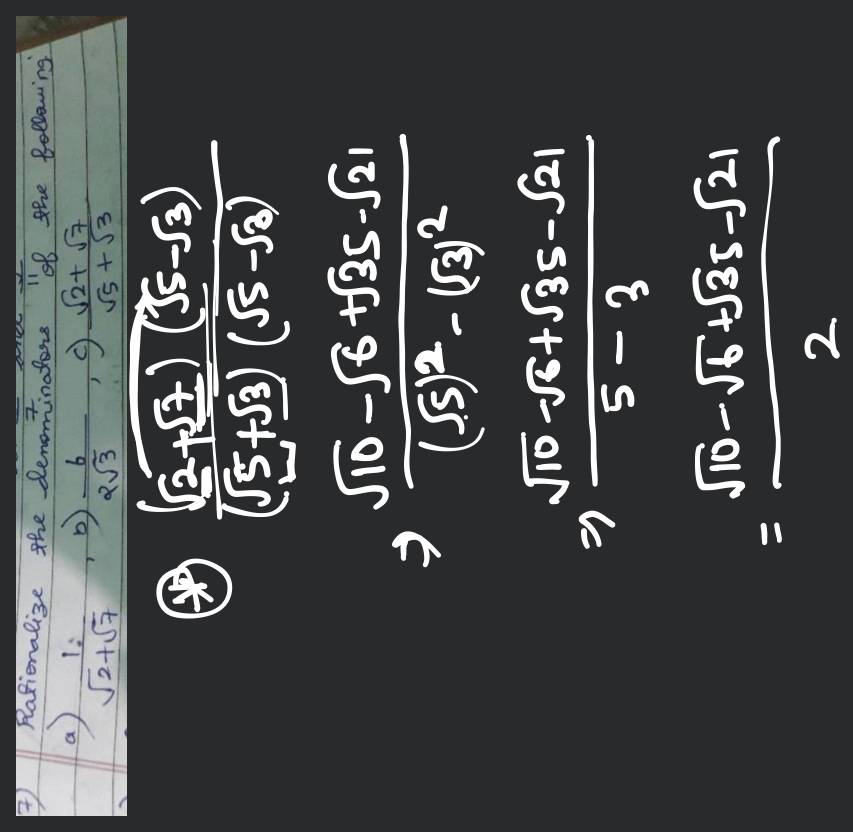 7) Rationalize the denominators of the following
a) 1/(√2+√7) , b) 6/(2√3) , c) (√2+√7)/(√5+√3)
(√2+√7) (√5-√3)
(√5+√3) (√5-√3)
⇒ √10 - √6 + √35 - √21
(√5)² - (√3)²
⇒ √10 - √6 + √35 - √21
5 - 3
= √10 - √6 + √35 - √21
2